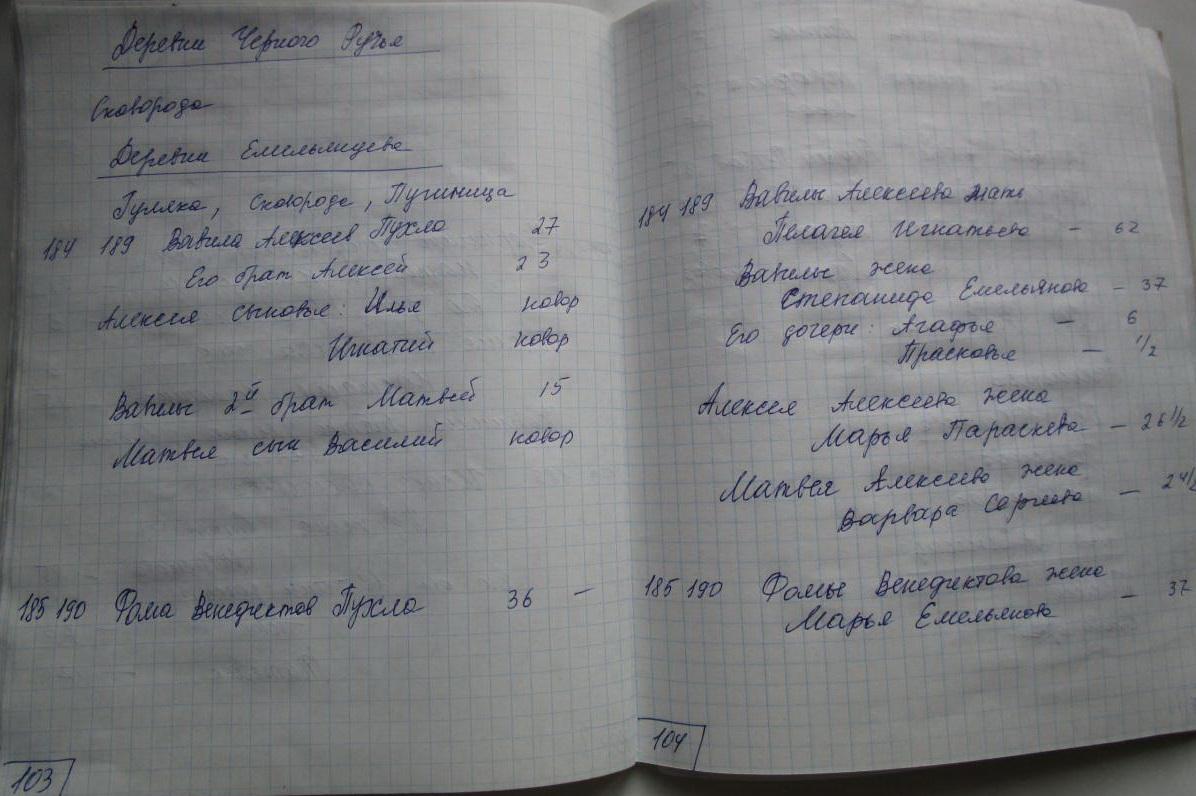 Деревни Черного Ручья
Сковорода
Деревни Емельянцева
Гуляка, Сковорода, Пугиница
184 189 Вавила Алексеев Пухло 27
Его брат Алексей 23
Алексея сыновья: Илья новор
Игнатий новор
Вавилы 2й брат Матвей 15
Матвея сын Василий новор
185 190 Фома Венедиктов Пухло 36 —
103
184 189 Вавилы Алексеева мать
Пелагея Игнатьева — 62
Вавилы жена
Степанида Емельянова — 37
Его дочери: Агафья — 6
Прасковья — 1/2
Алексея Алексеева жена
Марья Параскева — 26 1/2
Матвея Алексеева жена
Варвара Сергеева — 24 1/2
185 190 Фомы Венедиктова жена
Марья Емельянова — 37
104